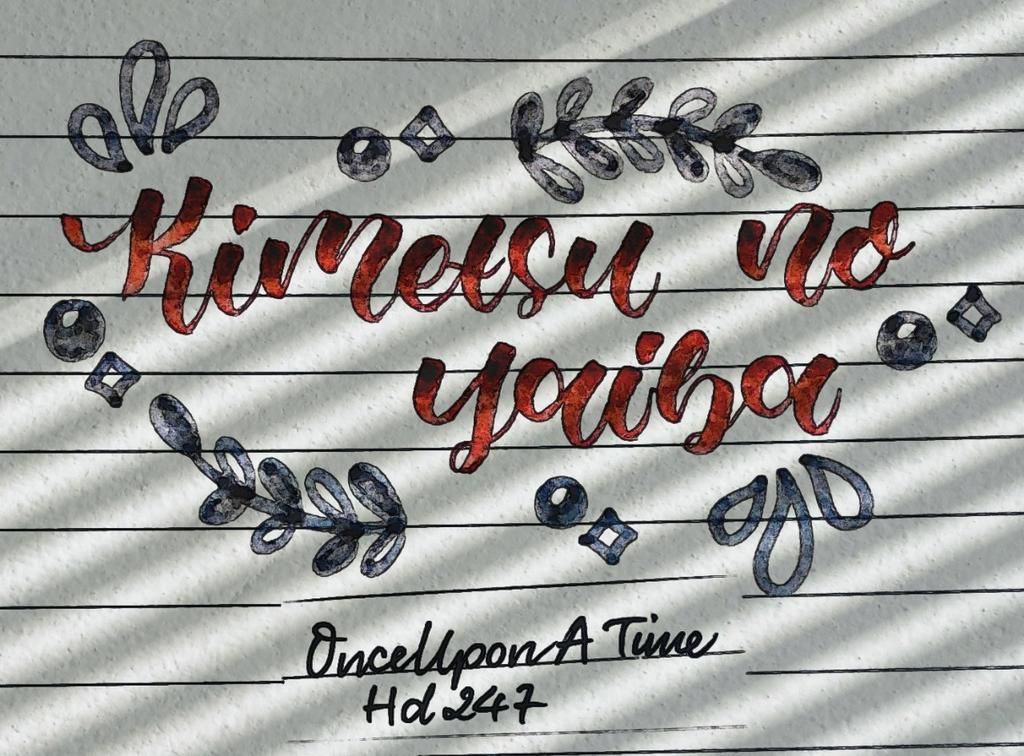 Kimetsu no
yaiba
OnceUpon A Time
Hd 247